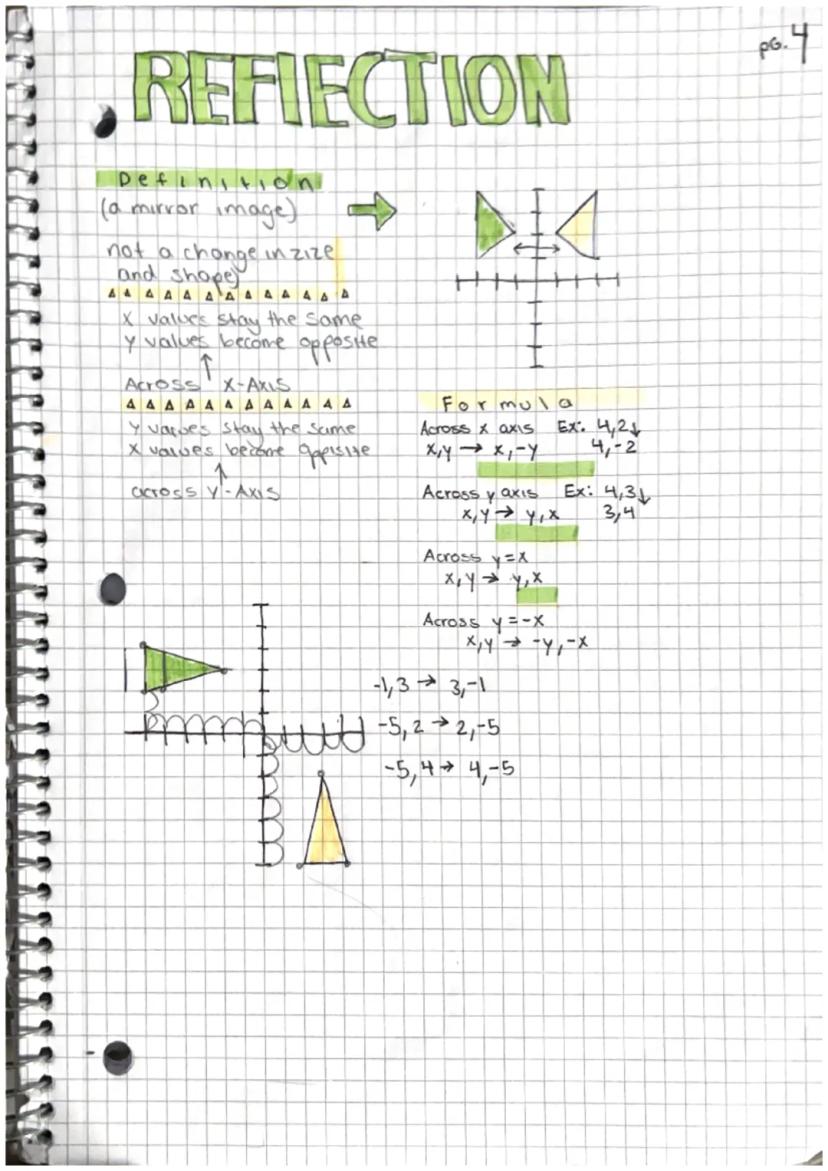 pG. 4
REFLECTION
Definition
(a mirror image)
not a change in zize
and shape)
X values stay the same
Y values become opposite
Across X-Axis
Y values stay the same
X values become opposite
across Y-Axis
Formula
Across x axis Ex: 4,2↓
x,y → x,-y 4,-2
Across y axis Ex: 4,3↓
x,y → y,x 3,4
Across y=x
x,y → y,x
Across y=-x
x,y → -y,-x
-1,3 → 3,-1
-5,2 → 2,-5
-5,4 → 4,-5